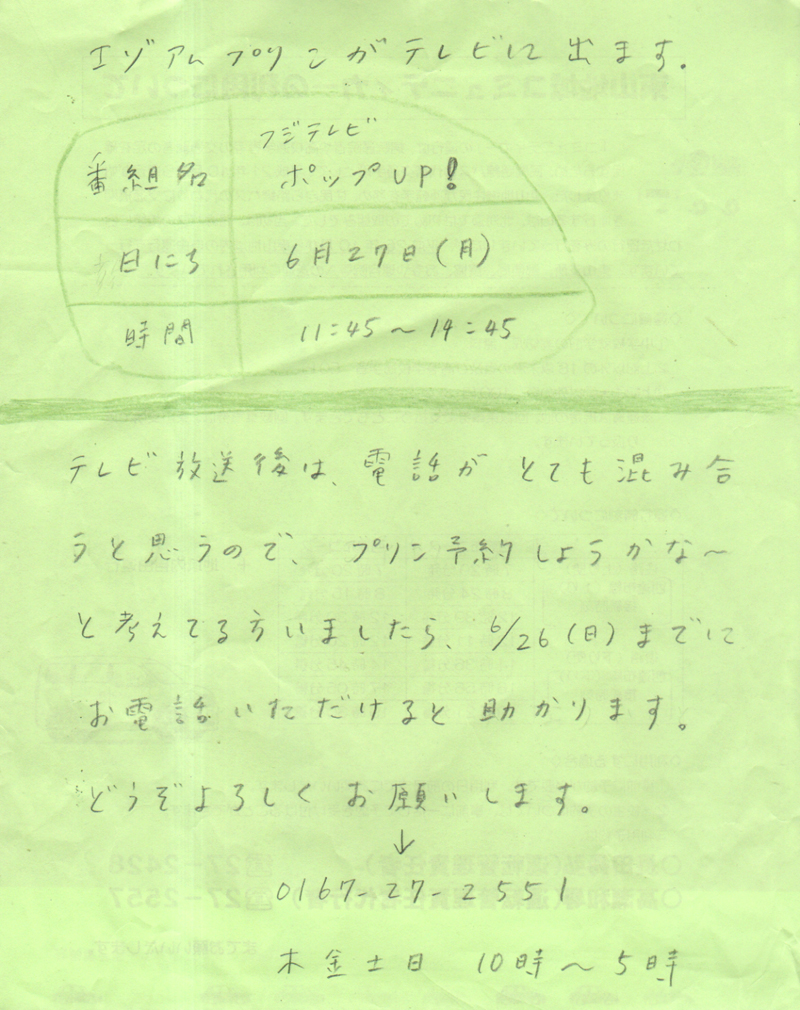 エゾアムプリンがテレビに出ます。
フジテレビ
番組名 ポップUP!
日にち 6月27日(月)
時間 11:45〜14:45
テレビ放送後は、電話がとても混み合
うと思うので、プリン予約しようかな〜
と考えてる方いましたら、6/26(日)までに
お電話いただけると助かります。
どうぞよろしくお願いします。
↓
0167-27-2551
木金土日 10時〜5時